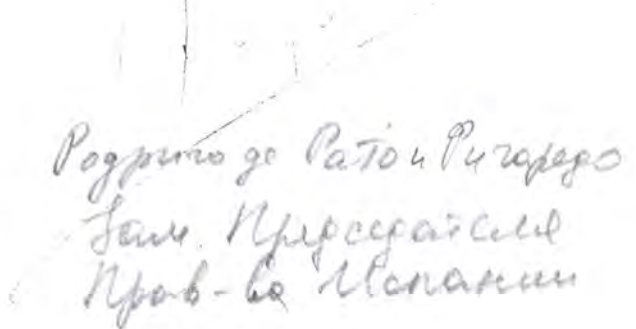 Родриго де Рато и Фигаредо
Зам. Председателя
Прав-ва Испании